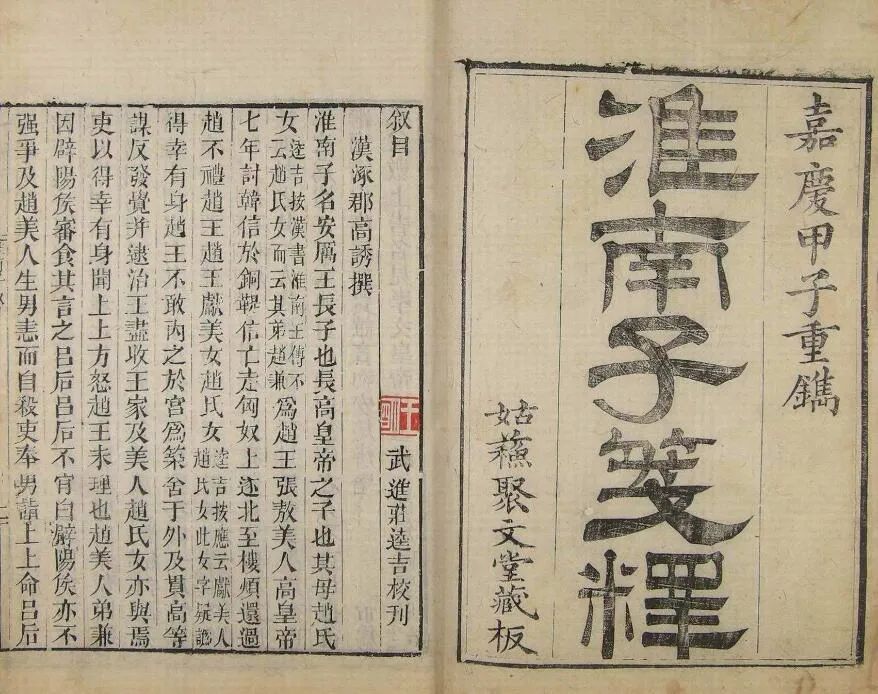 嘉慶甲子重鐫
淮南子箋釋
姑蘓聚文堂藏板
叙目 武進莊逵吉校刊
漢涿郡高誘撰
淮南子名安厲王長子也長高皇帝之子也其母趙氏
女逵吉按漢書淮南王傳不云趙氏女而云其弟趙兼為趙王張敖美人高皇帝
七年討韓信於銅鞮信亡走匈奴上遂北至樓煩還過
趙不禮趙王趙王獻美女趙氏女逵吉按應云獻美人趙氏女此女字疑譌
得幸有身趙王不敢內之於宮為築舍于外及貫高等
謀反發覺并逮治王盡收王家及美人趙氏女亦與焉
吏以得幸有身聞上上方怒趙王未理也趙美人弟兼
因辟陽侯審食其言之呂后呂后不肯白辟陽侯亦不
強爭及趙美人生男恚而自殺吏奉男詣上上命呂后